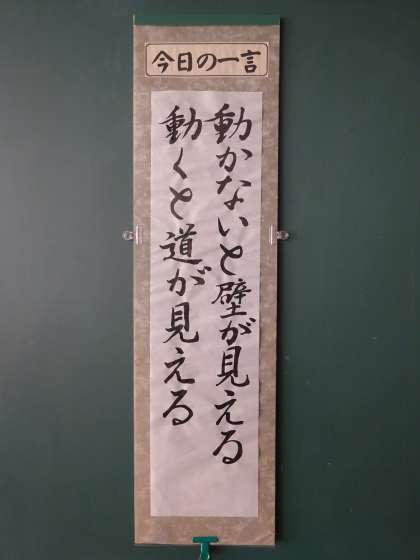 今日の一言
動かないと壁が見える
動くと道が見える